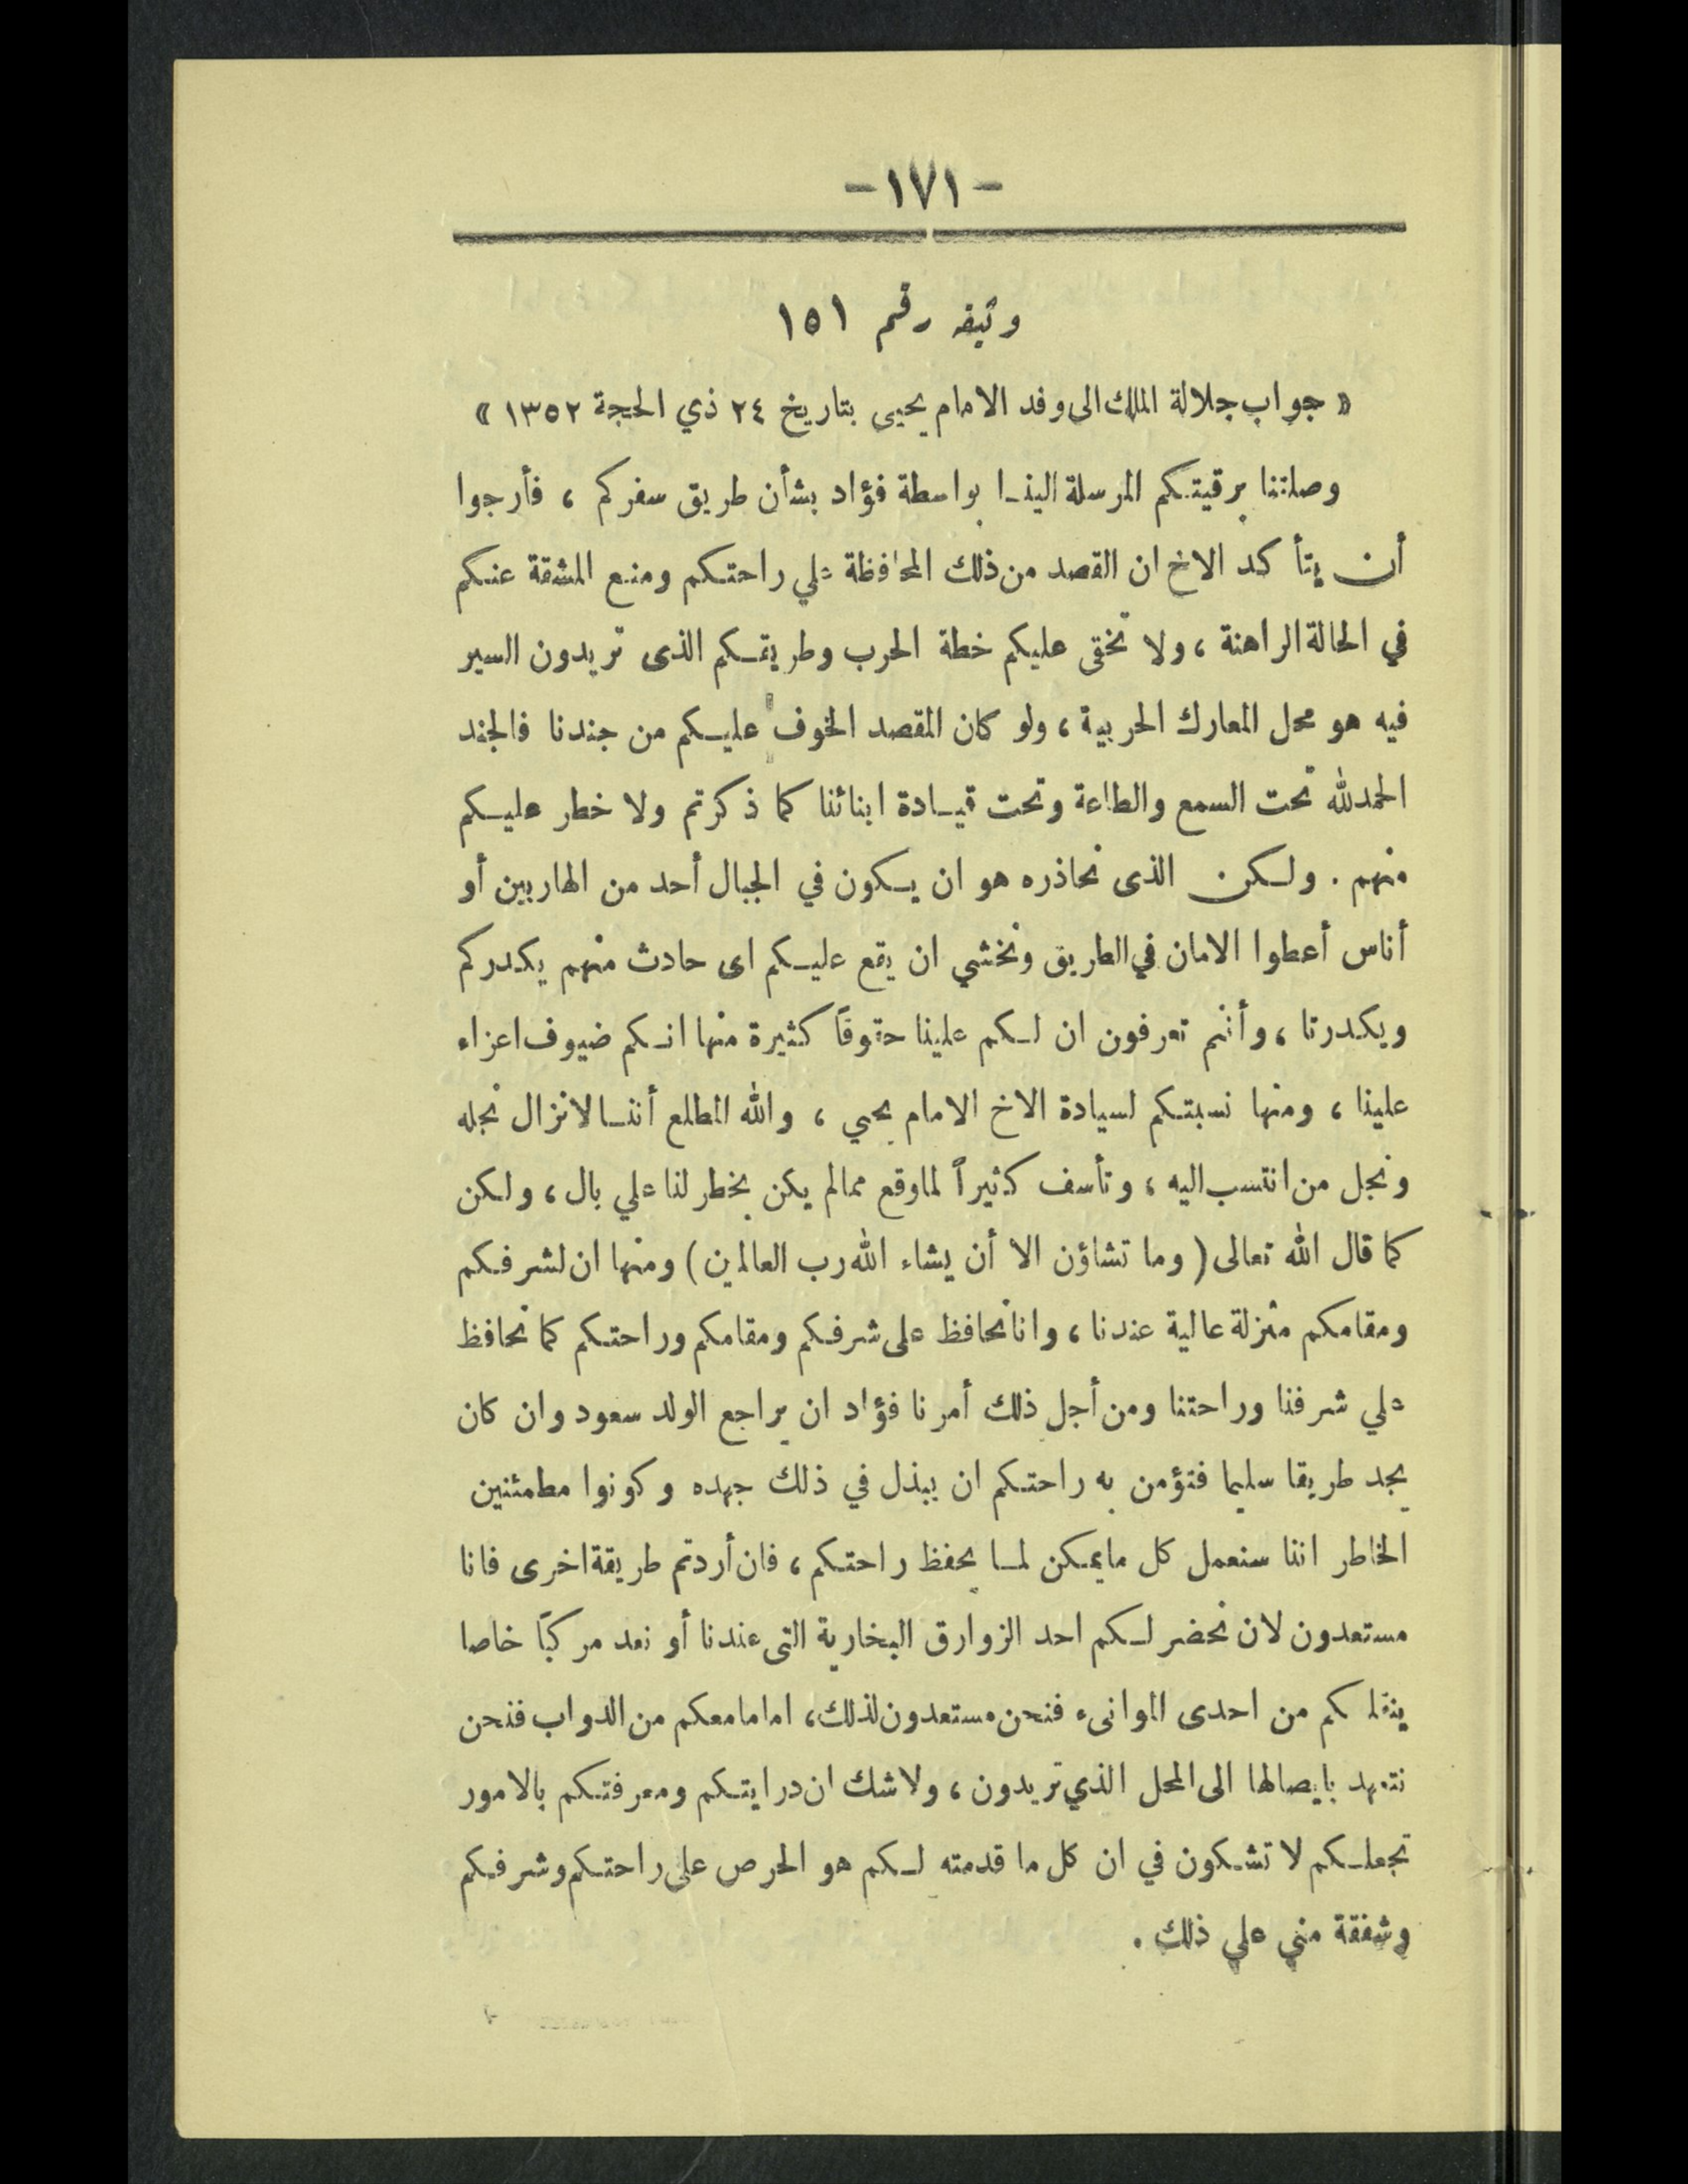 -١٧١-
وثيقه رقم ١٥١
« جواب جلالة الملك الى وفد الامام يحيى بتاريخ ٢٤ ذي الحجة ١٣٥٢ »
وصلتنا برقيتكم المرسلة الينا بواسطة فؤاد بشأن طريق سفركم ، فأرجوا
أن يتأكد الاخ ان القصد من ذلك المحافظة علي راحتكم ومنع المشقة عنكم
في الحالة الراهنة ، ولا تخفى عليكم خطة الحرب وطريقكم الذى تريدون السير
فيه هو محل المعارك الحربية ، ولو كان المقصد الخوف عليكم من جندنا فالجند
الحمدلله تحت السمع والطاعة وتحت قيادة ابنائنا كما ذكرتم ولا خطر عليكم
منهم . ولكن الذى نحاذره هو ان يكون في الجبال أحد من الهاربين أو
أناس أعطوا الامان في الطريق ونخشي ان يقع عليكم اى حادث منهم يكدركم
ويكدرنا ، وأنتم تعرفون ان لكم علينا حقوقاً كثيرة منها انكم ضيوف اعزاء
علينا ، ومنها نسبتكم لسيادة الاخ الامام يحيي ، والله المطلع أننا لانزال نجله
ونجل من انتسب اليه ، ونأسف كثيراً لماوقع ممالم يكن يخطر لنا علي بال ، ولكن
كما قال الله تعالى ( وما تشاؤن الا أن يشاء الله رب العالمين ) ومنها ان لشرفكم
ومقامكم منزلة عالية عندنا ، وانانحافظ على شرفكم ومقامكم وراحتكم كما نحافظ
علي شرفنا وراحتنا ومن أجل ذلك أمرنا فؤاد ان يراجع الولد سعود وان كان
يجد طريقا سليما فتؤمن به راحتكم ان يبذل في ذلك جهده وكونوا مطمئنين
الخاطر اننا سنعمل كل مايمكن لما يحفظ راحتكم ، فان أردتم طريقة اخرى فانا
مستعدون لان نحضر لكم احد الزوارق البخارية التى عندنا أو نعد مركباً خاصا
ينقلكم من احدى الموانىء فنحن مستعدون لذلك ، امامامعكم من الدواب فنحن
نتعهد بايصالها الى المحل الذي تريدون ، ولاشك ان درايتكم ومعرفتكم بالامور
تجعلكم لا تشكون في ان كل ما قدمته لكم هو الحرص على راحتكم وشرفكم
وشفقة مني علي ذلك .